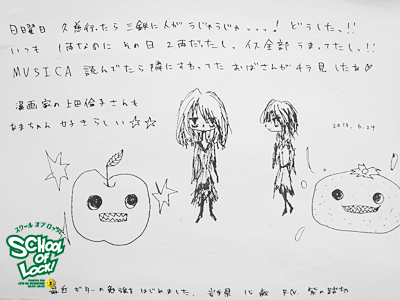 日曜日 久慈行ったら三鉄に人がうじゃうじゃ...! どうした!!
いつも 1両なのに その日 2両だったし、イス全部 うまってたし!!
MUSICA 読んでたら 隣にすわってた おばさんが チラ見 したね
漫画家の上田倫子さんも
あまちゃん 好きらしい☆☆
2013.6.24
スクール オブ ロック!
SCHOOL
OF
LOCK!
最近 ギターの勉強をはじめました。 岩手県 15歳 R.N. 紫の踏切